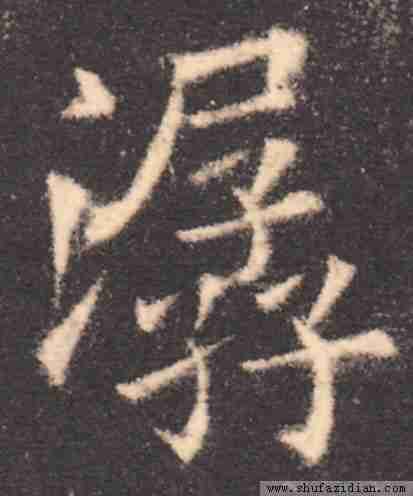 潺
www.shufazidian.com